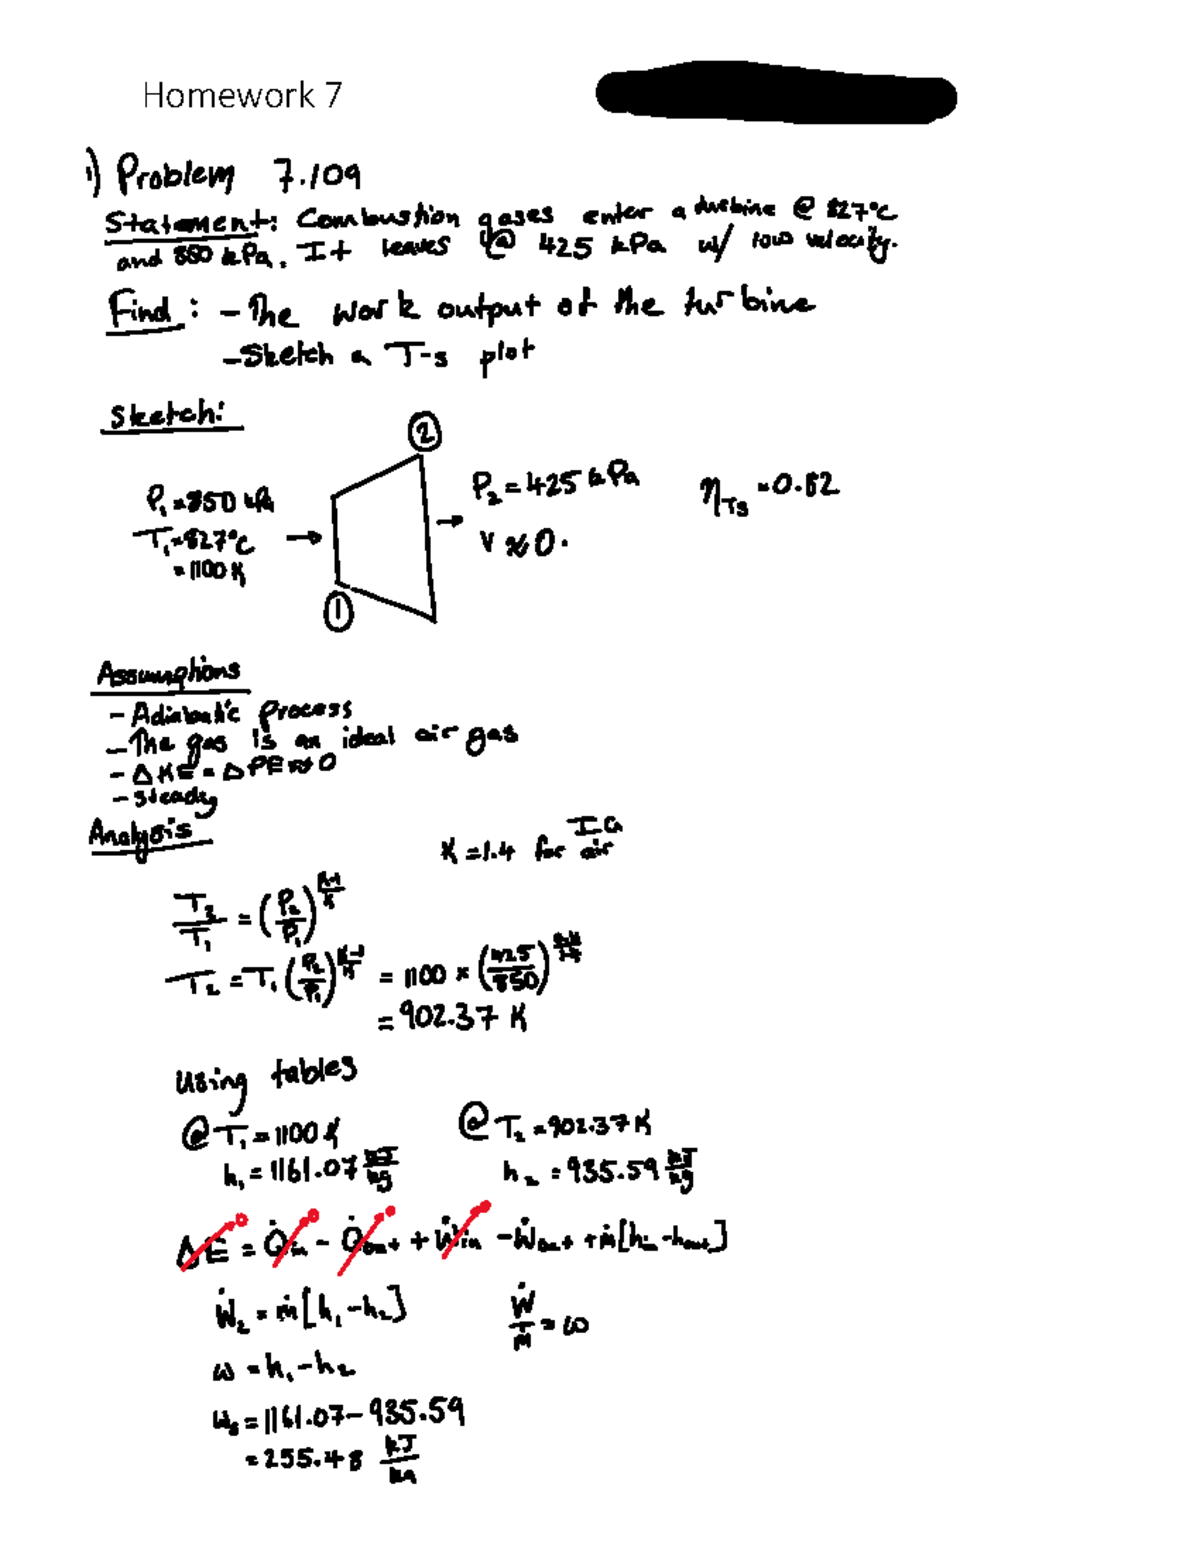 Homework 7
1) Problem 7.109
Statement: Combustion gases enter a turbine @ 827°C
and 850 kPa. It leaves @ 425 kPa w/ low velocity.
Find: - The work output of the turbine
- Sketch a T-s plot
Sketch:
②
P₁ = 850 kPa
T₁ = 827°C
= 1100 K
①
P₂ = 425 kPa
V ≈ 0.
η_TS = 0.82
Assumptions
- Adiabatic process
- The gas is an ideal air gas
- ΔKE = ΔPE ≈ 0
- steady
Analysis
K = 1.4 for IG air
T₂/T₁ = (P₂/P₁)^((K-1)/K)
T₂ = T₁ (P₂/P₁)^((K-1)/K) = 1100 × (425/850)^((0.4)/1.4)
= 902.37 K
Using tables
@ T₁ = 1100 K
h₁ = 1161.07 kJ/kg
@ T₂ = 902.37 K
h₂ = 935.59 kJ/kg
ΔE = Q̇in - Q̇out + Ẇin - Ẇout + ṁ[hin - hout]
0 0 0 0
Ẇ₂ = ṁ[h₁ - h₂]
Ẇ/ṁ = ω
ω = h₁ - h₂
ωs = 1161.07 - 935.59
= 255.48 kJ/kg